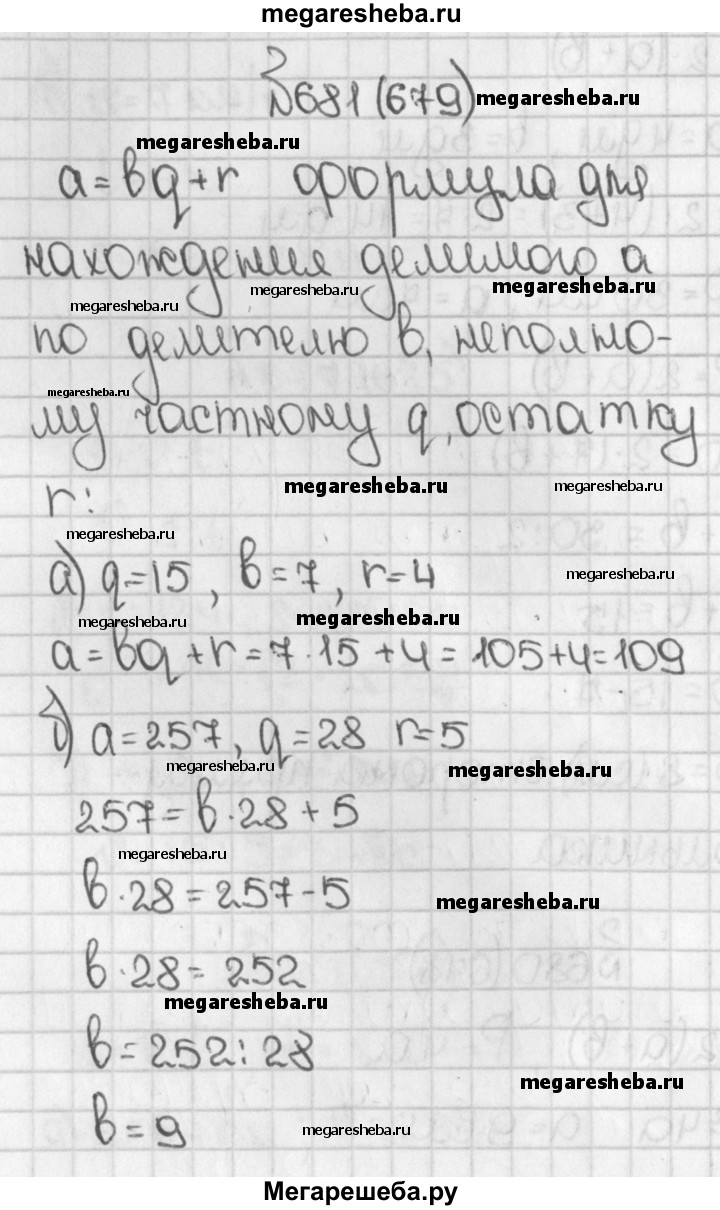 megaresheba.ru
№681 (679) megaresheba.ru
megaresheba.ru
a = bq + r формула для
нахождения делимого a
megaresheba.ru megaresheba.ru megaresheba.ru
по делителю b, неполно-
megaresheba.ru
му частному q, остатку
r:
megaresheba.ru megaresheba.ru
megaresheba.ru
а) q=15, b=7, r=4 megaresheba.ru
megaresheba.ru megaresheba.ru
a = bq + r = 7·15 + 4 = 105+4=109
б) a=257, q=28 r=5
megaresheba.ru megaresheba.ru
257 = b·28 + 5
megaresheba.ru
b·28 = 257-5
megaresheba.ru
b·28 = 252
megaresheba.ru
b = 252:28
megaresheba.ru
b = 9
megaresheba.ru
Мегарешеба.ру